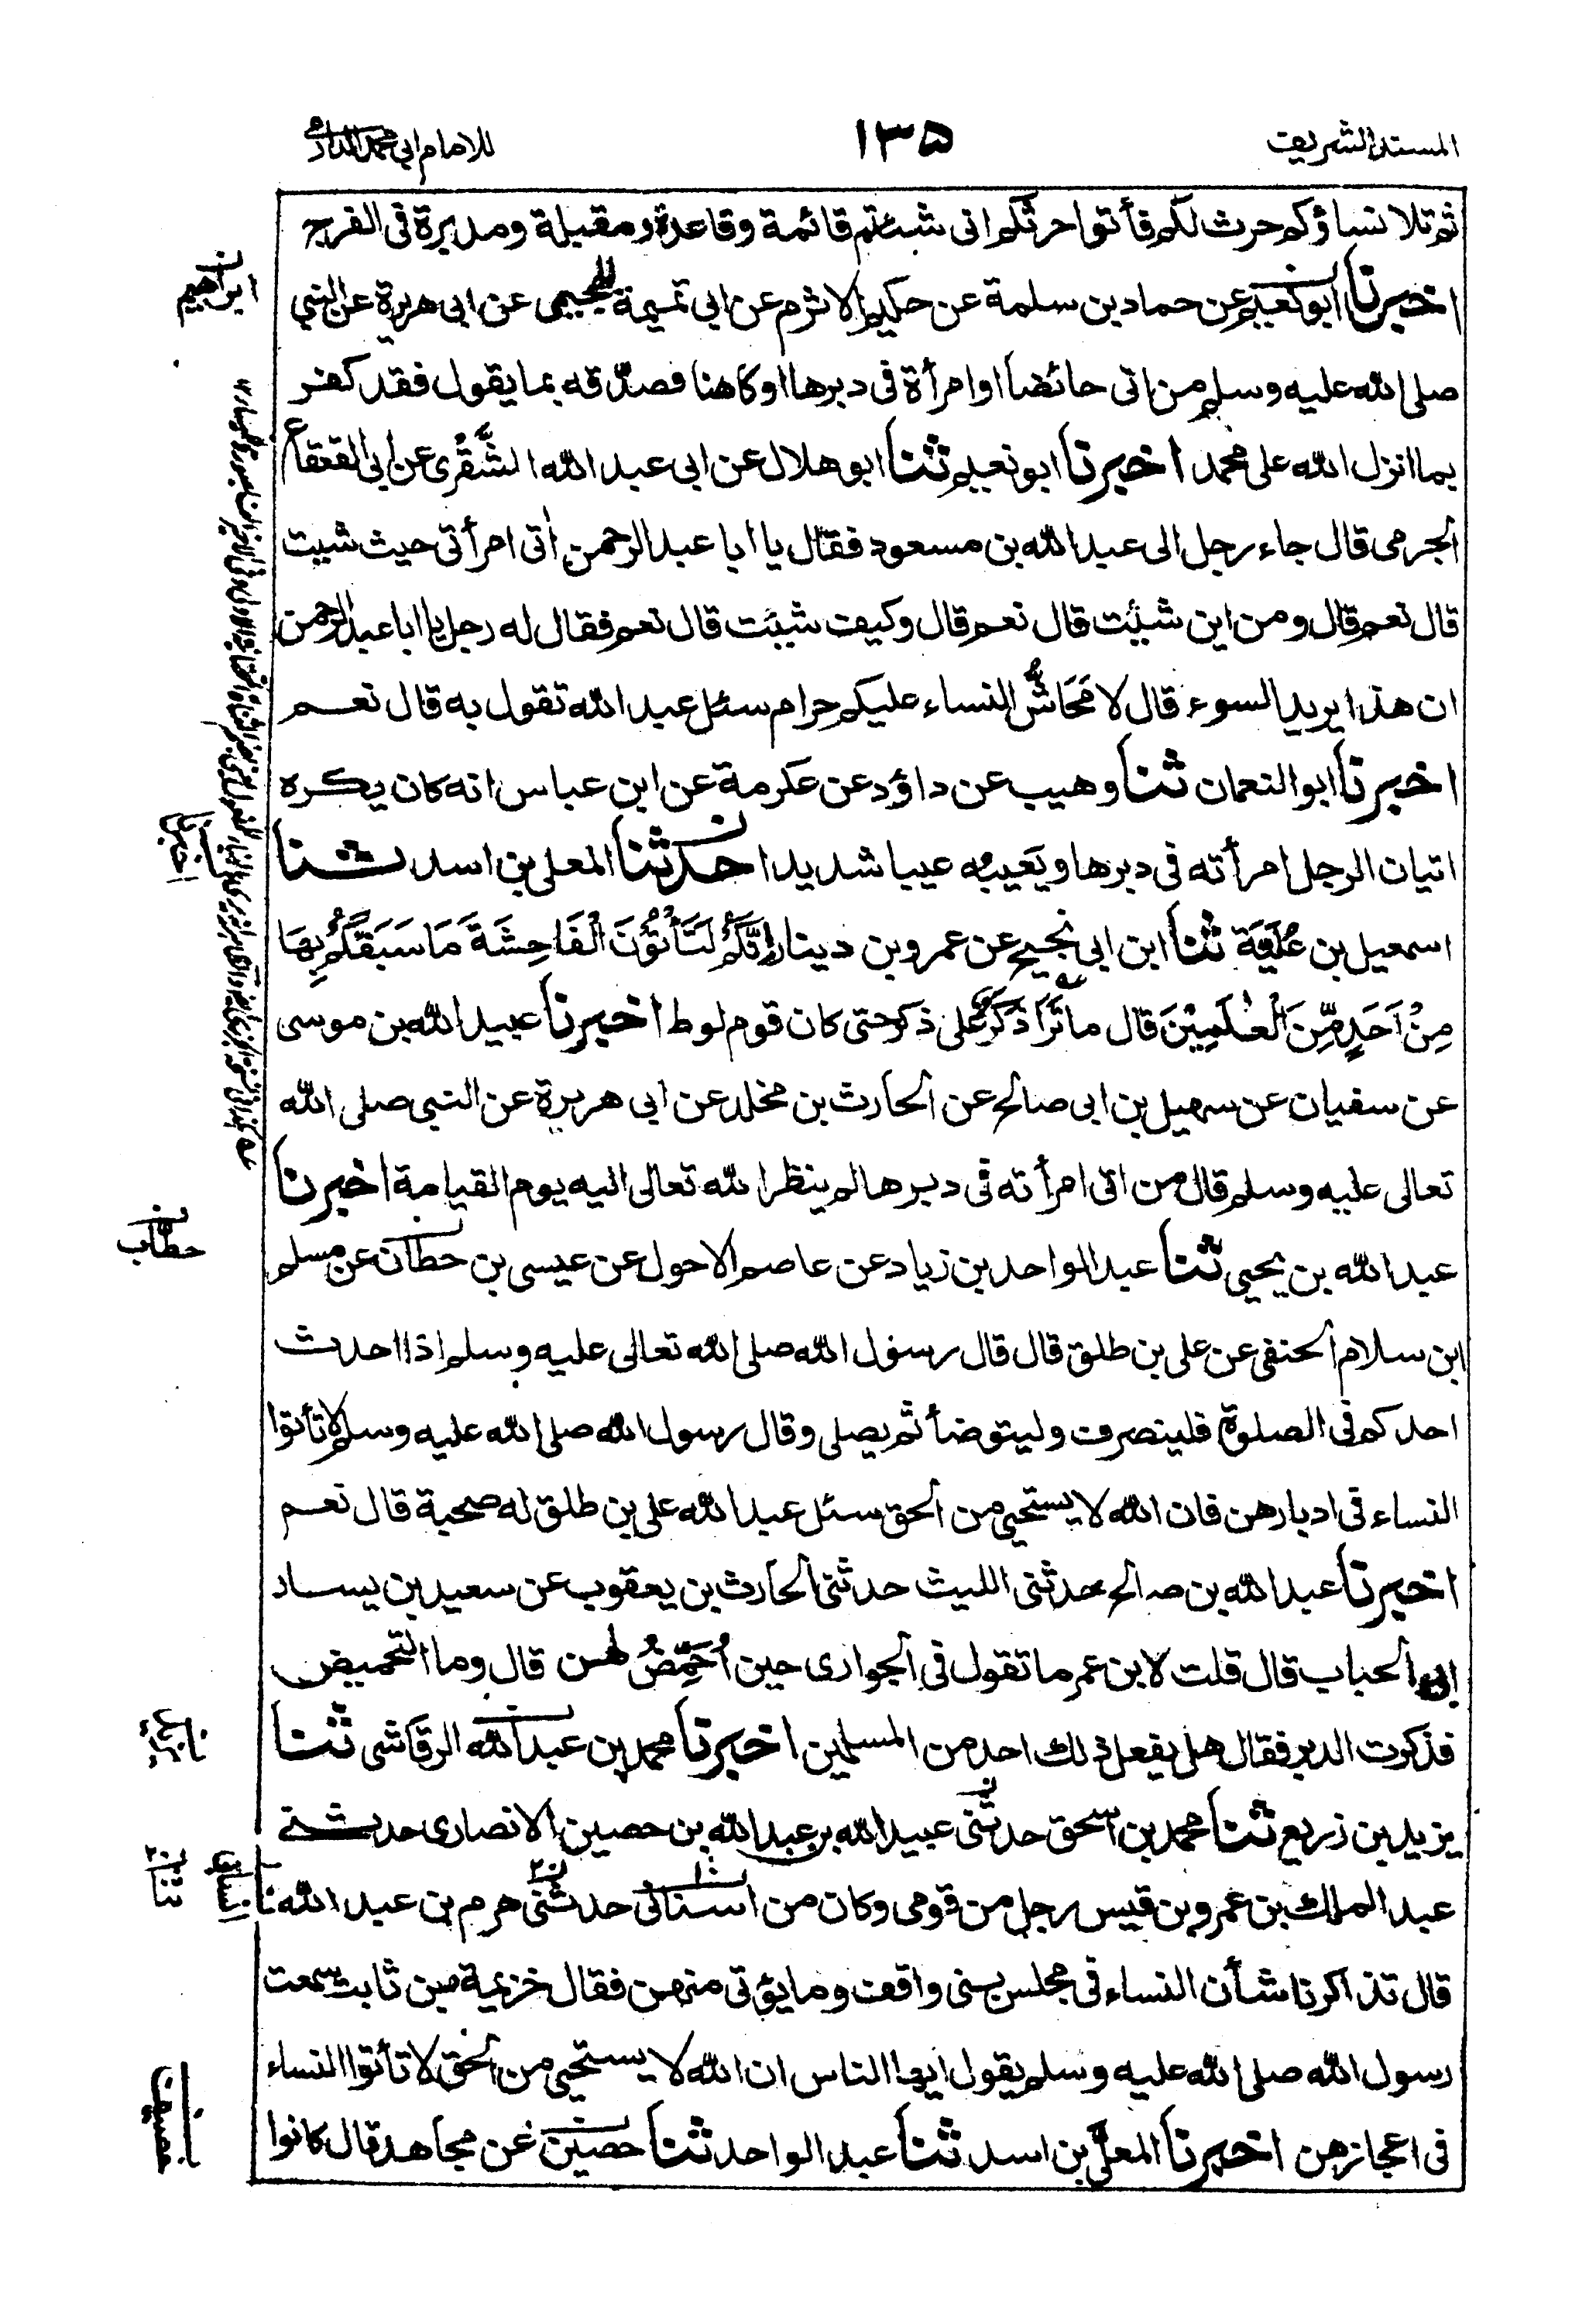 المسند الشريف
١٣٥
للامام ابي محمد الدارمي
ثم تلا نساؤكم حرث لكم فأتوا حرثكم انى شئتم قائمة وقاعدة ومقبلة ومدبرة فى الفرج
اخبرنا ابو نعيم عن حماد بن سلمة عن حكيم الاثرم عن ابى تميمة الهجيمى عن ابى هريرة عن النبي
ابراهيم
صلى الله عليه وسلم من اتى حائضا او امرأة فى دبرها او كاهنا فصدّقه بما يقول فقد كفر
بما انزل الله على محمد اخبرنا ابو نعيم ثنا ابو هلال عن ابى عبد الله الشَّقْرى عن ابى القعقاع
الجرمى قال جاء رجل الى عبد الله بن مسعود فقال يا ابا عبد الرحمن اٰتى امرأتى حيث شيت
قال نعم قال ومن اين شئت قال نعم قال وكيف شئت قال نعم فقال له رجل يا ابا عبد الرحمن
ان هذا يريد السوء قال لا مَحَاشُّ النساء عليكم حرام سئل عبد الله تقول به قال نعم
اخبرنا ابو النعمان ثنا وهيب عن داؤد عن عكرمة عن ابن عباس انه كان يكره
اتيان الرجل امرأته فى دبرها ويَعيبُه عيبا شديدا حدثنا المعلى بن اسد ثنا
اخبرنا
اسمعيل بن عُلَيَّة ثنا ابن ابى نجيح عن عمرو بن دينار إِنَّكُمْ لَتَأْتُوْنَ الْفَاحِشَةَ مَا سَبَقَكُمْ بِهَا
مِنْ اَحَدٍ مِّنَ الْعٰلَمِيْنَ قال ما نَزَا ذَكَرٌ على ذكر حتى كان قوم لوط اخبرنا عبيد الله بن موسى
عن سفيان عن سهيل بن ابى صالح عن الحارث بن مخلد عن ابى هريرة عن النبى صلى الله
تعالى عليه وسلم قال من اتى امرأته فى دبرها لم ينظر الله تعالى اليه يوم القيامة اخبرنا
حطّاب
عبد الله بن يحيى ثنا عبد الواحد بن زياد عن عاصم الاحول عن عيسى بن حطان عن مسلم
ابن سلام الحنفى عن على بن طلق قال قال رسول الله صلى الله تعالى عليه وسلم اذا احدث
احدكم فى الصلوة فلينصرف وليتوضأ ثم يصلى وقال رسول الله صلى الله عليه وسلم لا تأتوا
النساء فى ادبارهن فان الله لا يستحيى من الحق سئل عبد الله على بن طلق له صحبة قال نعم
اخبرنا عبد الله بن صالح حدثنى الليث حدثنى الحارث بن يعقوب عن سعيد بن يسار
ابى الحباب قال قلت لابن عمر ما تقول فى الجوارى حين اُحَمِّضُ لهن قال وما التحميض
فذكرت الدبر فقال هل يفعل ذلك احد من المسلمين اخبرنا محمد بن عبد الله الرقاشى ثنا
يزيد بن زريع ثنا محمد بن اسحق حدثنى عبيد الله بن عبد الله بن حصين الانصارى حدثنى
عبد الملك بن عمرو بن قيس رجل من قومى وكان من اسنانى حدثنى هرم بن عبد الله
ثنا
قال تذاكرنا شأن النساء فى مجلس بنى واقف وما يؤتى منهن فقال خزيمة بن ثابت سمعت
رسول الله صلى الله عليه وسلم يقول ايها الناس ان الله لا يستحيى من الحق لا تأتوا النساء
فى اعجازهن اخبرنا المعلّى بن اسد ثنا عبد الواحد ثنا حصين عن مجاهد قال كانوا
خصيف